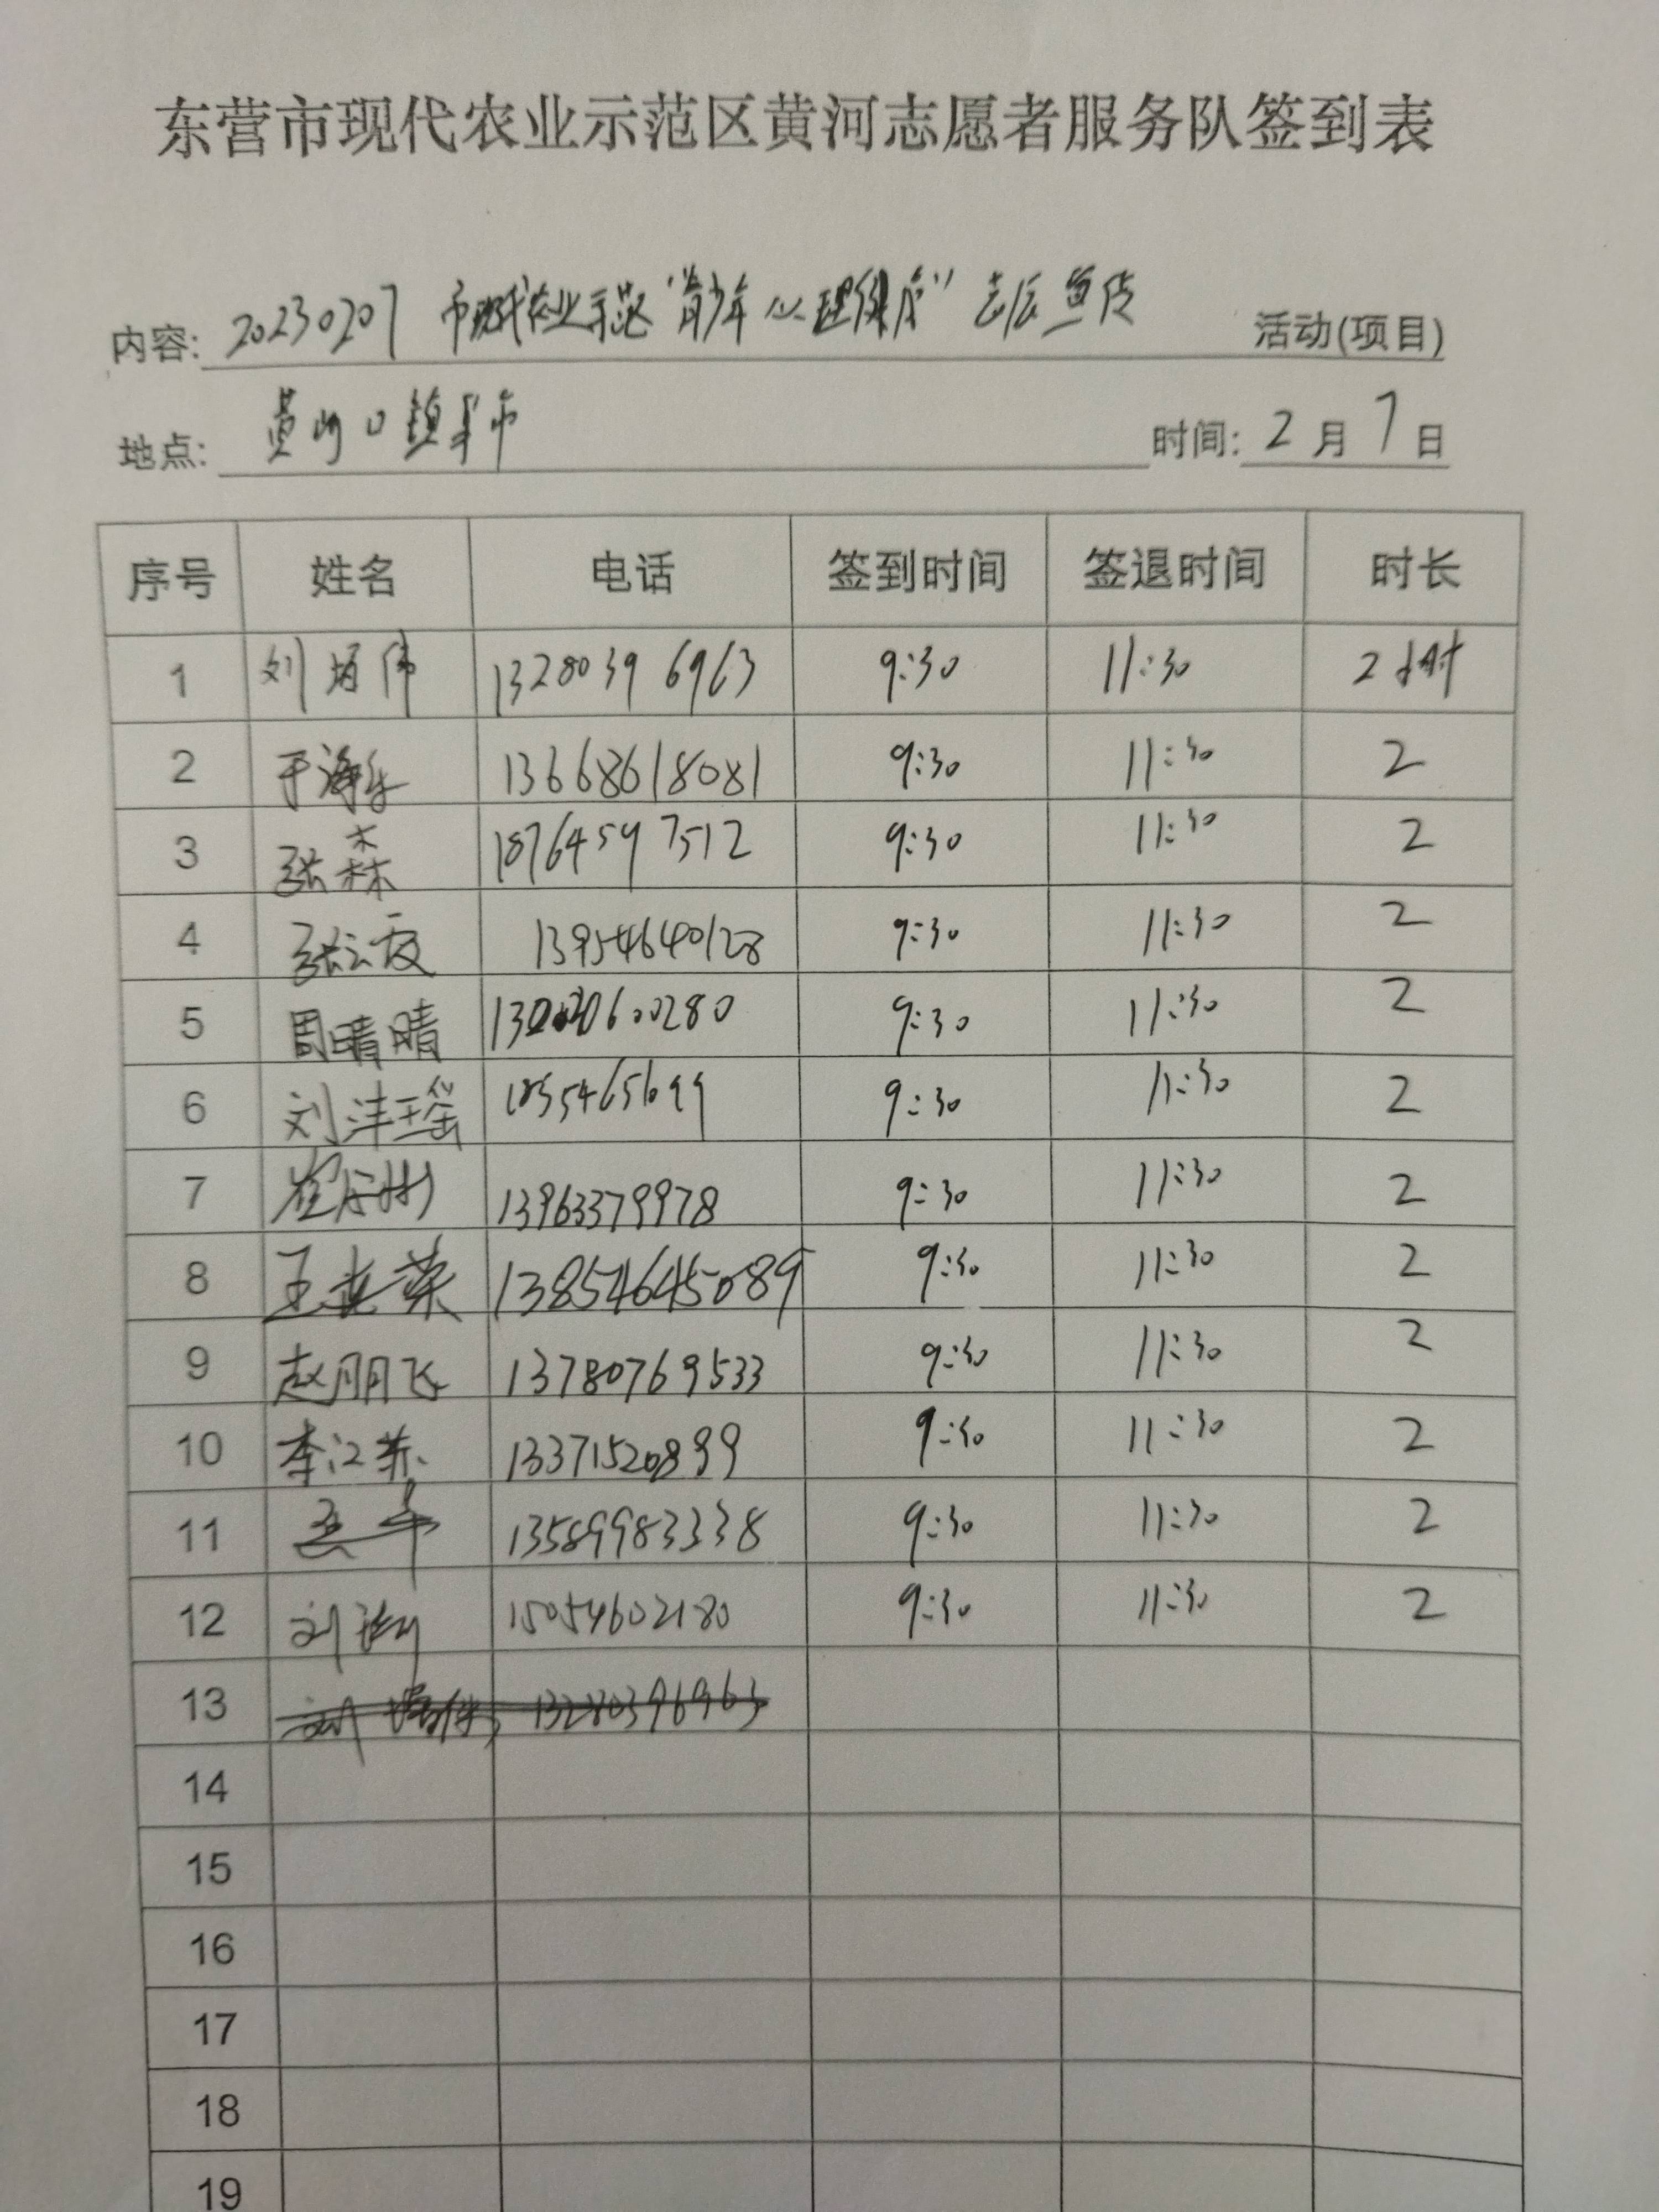 东营市现代农业示范区黄河志愿者服务队签到表
内容: 20230207 市现代农业示范区"青少年心理健康"志愿宣传 活动(项目)
地点: 黄河口镇集市 时间: 2月7日
序号 姓名 电话 签到时间 签退时间 时长
1 刘 伟 13280396963 9:30 11:30 2小时
2 于海 13668618081 9:30 11:30 2
3 张森 18764597512 9:30 11:30 2
4 张云霞 13954640128 9:30 11:30 2
5 周晴晴 9:30 11:30 2
6 刘沣瑶 9:30 11:30 2
7 崔 13963379978 9:30 11:30 2
8 王 荣 13854645089 9:30 11:30 2
9 赵朋飞 13780769533 9:30 11:30 2
10 李江 13371520899 9:30 11:30 2
11 13589983338 9:30 11:30 2
12 刘 15054602180 9:30 11:30 2
13 刘 13280396963
14
15
16
17
18
19